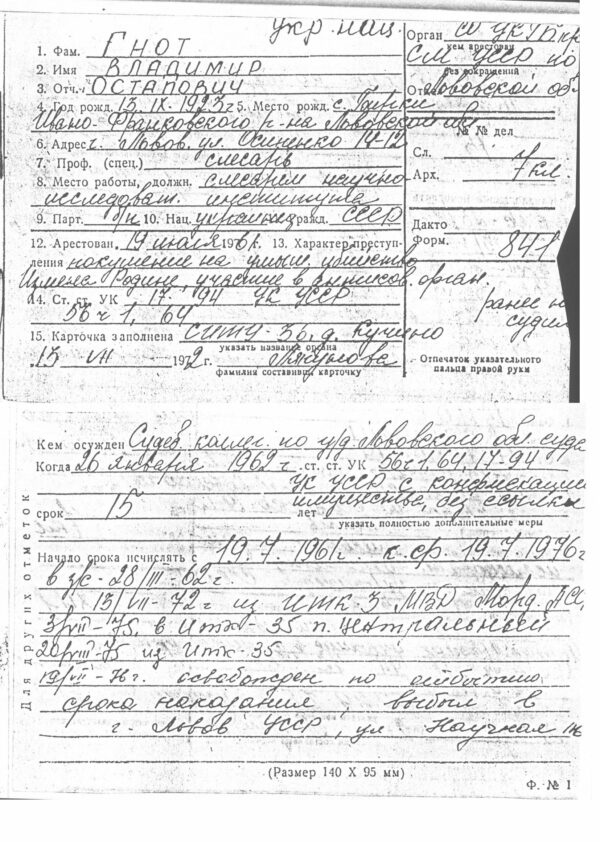 укр. нац.
1. Фам. ГНОТ
2. Имя ВЛАДИМИР
3. Отч. ОСТАПОВИЧ
4. Год рожд. 13.IX-1923г 5. Место рожд. с.
Ивано-Франковского р-на Львовской обл
6. Адрес г. Львов, ул. Осипенко 14-12
7. Проф. (спец.) слесарь
8. Место работы, должн. слесарем научно
исследоват. института
9. Парт. б/п 10. Нац. украинец гражд. СССР
12. Арестован 19 июля 1961г. 13. Характер преступ-
ления покушение на умыш. убийство
Измена Родине, участие в антисов. орган.
14. Ст. ст. УК 17-94 УК УССР
56 ч 1, 64
15. Карточка заполнена д. Кучино
указать название органа
13 VII 1972 г.
фамилия составившего карточку
Орган СО УКГБ при
кем арестован
СМ УССР по
без сокращений
Львовской обл.
№ № дел
Сл.
Арх. 7 кл.
Дакто
Форм. 84-1
ранее не
судим
Отпечаток указательного
пальца правой руки
Кем осужден Судеб. коллег. по у/д Львовского обл. суда
Когда 26 января 1962 г. ст. ст. УК 56 ч 1, 64, 17-94
УК УССР с конфискацией
имущества, без ссылки
срок 15 лет
указать полностью дополнительные меры
Для других отметок
Начало срока исчислять с 19.7.1961г. к.ср. 19.7.1976г
в з/с - 28/III-62 г.
13/VII-72 г из ИТК 3 МВД Морд. АССР
3/VII-75. в ИТК-35 п. Центральный
20/VIII-75 из ИТК-35
19/VII-76 г. освобожден по отбытию
срока наказания, выбыл в
г. Львов УССР, ул. Научная
(Размер 140 X 95 мм)
Ф. № 1